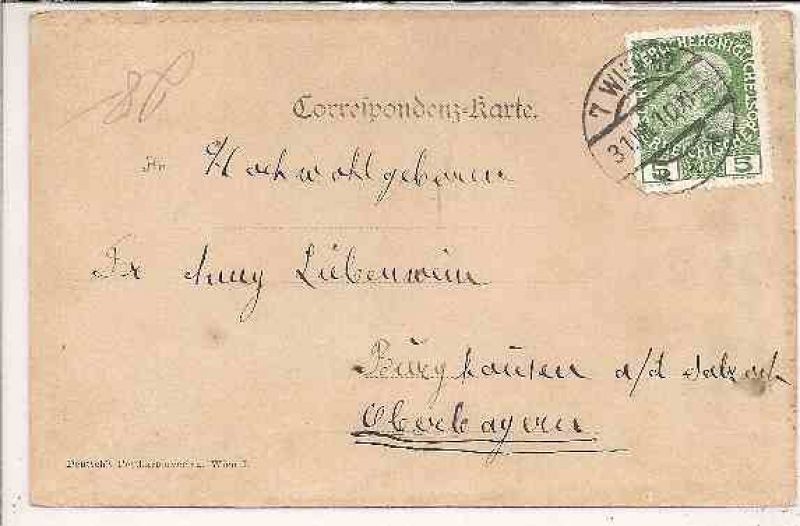 Correspondenz-Karte.
An Hochwohlgeboren
Fr Anny Liebenwein
Burghausen a/d Salzach
Oberbayern
Wien I.
7 WIEN
5 5